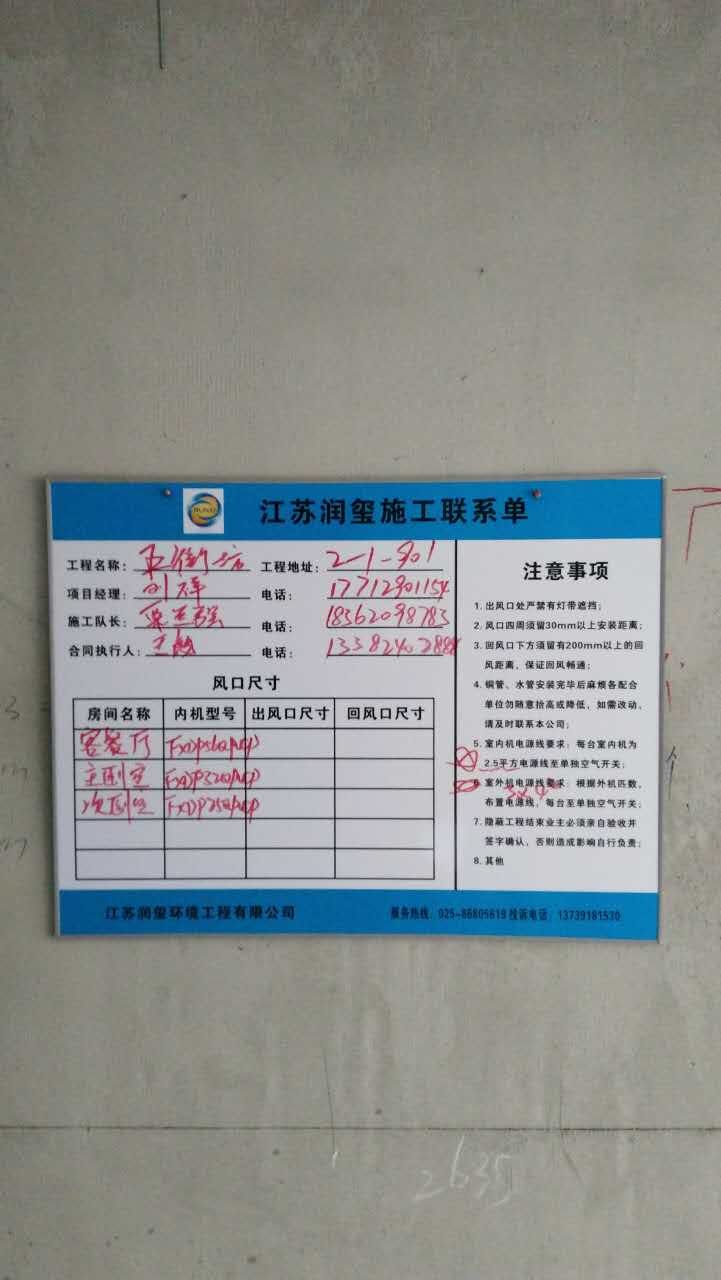 江苏润玺施工联系单
工程名称： 工程地址：2-1-901
项目经理： 电话：17712901154
施工队长： 电话：18362098783
合同执行人： 电话：
风口尺寸
房间名称 内机型号 出风口尺寸 回风口尺寸
客餐厅
主卧室
次卧室
注意事项
1. 出风口处严禁有灯带遮挡；
2. 风口四周须留30mm以上安装距离；
3. 回风口下方须留有200mm以上的回
风距离，保证回风畅通；
4. 铜管、水管安装完毕后麻烦各配合
单位勿随意抬高或降低，如需改动，
请及时联系本公司；
5. 室内机电源线要求：每台室内机为
2.5平方电源线至单独空气开关；
6. 室外机电源线要求：根据外机匹数，
布置电源线，每台至单独空气开关；
7. 隐蔽工程结束业主必须亲自验收并
签字确认，否则造成影响自行负责；
8. 其他
江苏润玺环境工程有限公司 服务热线：025-86805619 投诉电话：13739181530
2635